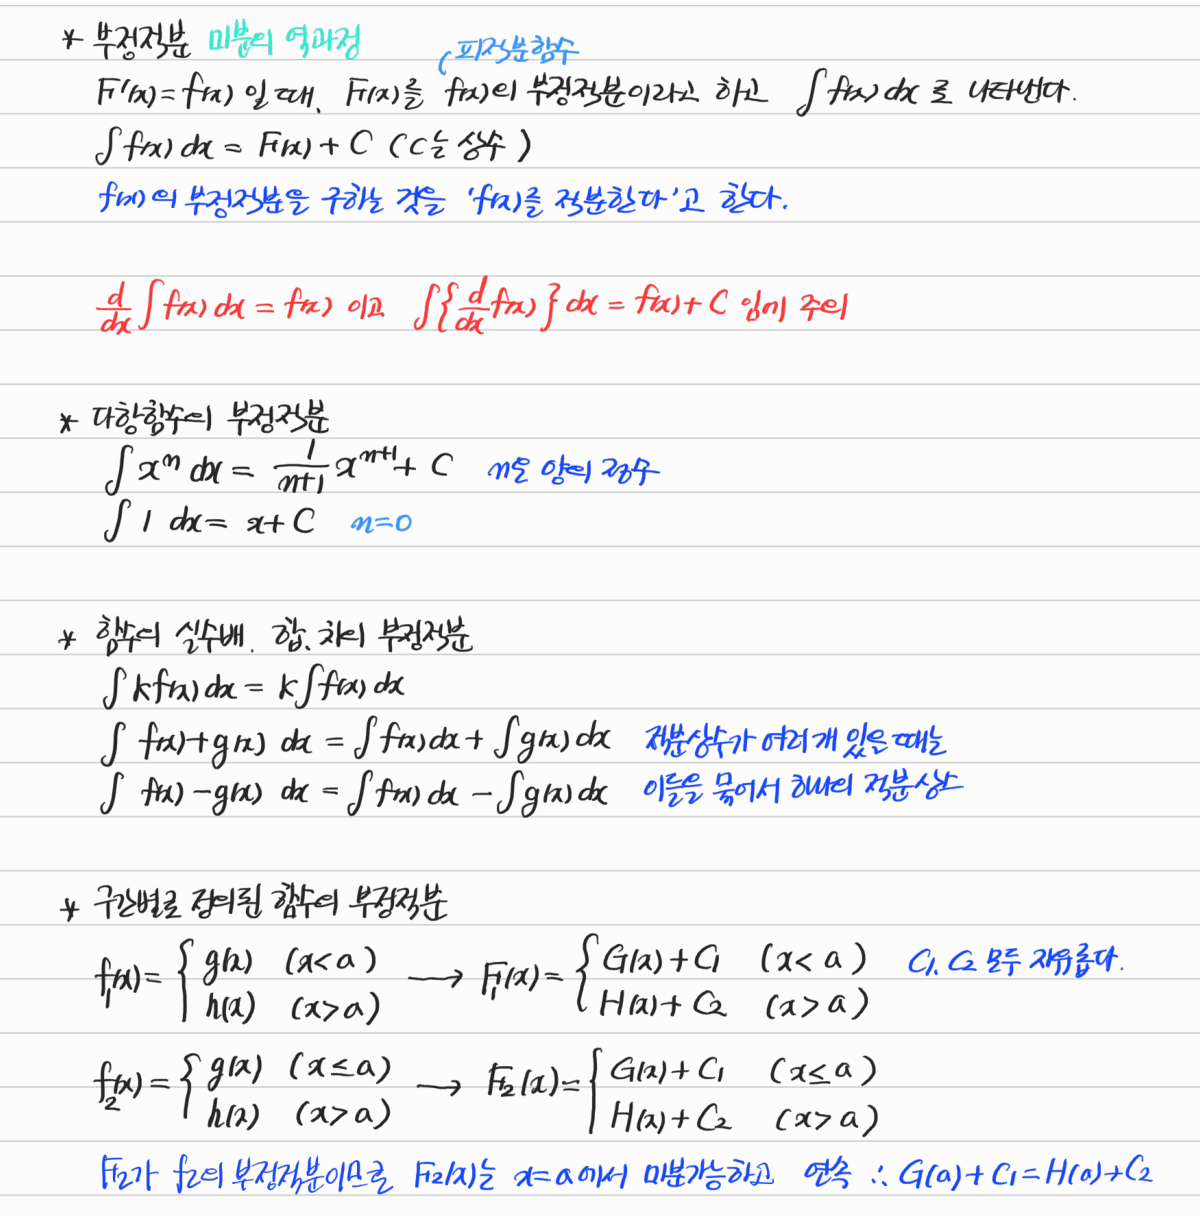 * 부정적분 미분의 역과정
( 피적분함수
F'(x)=f(x) 일 때, F(x)를 f(x)의 부정적분이라고 하고 ∫f(x)dx 로 나타낸다.
∫f(x)dx = F(x) + C (C는 상수)
f(x)의 부정적분을 구하는 것을 'f(x)를 적분한다'고 한다.
d/dx ∫f(x)dx = f(x) 이고 ∫{d/dx f(x)}dx = f(x)+C 임에 주의
* 다항함수의 부정적분
∫xⁿ dx = 1/(n+1) xⁿ⁺¹ + C n은 양의 정수
∫1 dx = x+C n=0
* 함수의 실수배, 합, 차의 부정적분
∫kf(x)dx = k∫f(x)dx
∫ f(x)+g(x) dx = ∫f(x)dx + ∫g(x)dx 적분상수가 여러개 있을 때는
∫ f(x)-g(x) dx = ∫f(x)dx - ∫g(x)dx 이들을 묶어서 하나의 적분상수
* 구간별로 정의된 함수의 부정적분
f₁(x)= { g(x) (x<a) → F₁(x)= { G(x)+C₁ (x<a) C₁, C₂ 모두 자유롭다.
h(x) (x>a) H(x)+C₂ (x>a)
f₂(x)= { g(x) (x≤a) → F₂(x)= { G(x)+C₁ (x≤a)
h(x) (x>a) H(x)+C₂ (x>a)
F₂가 f₂의 부정적분이므로 F₂(x)는 x=a에서 미분가능하고 연속 ∴ G(a)+C₁=H(a)+C₂